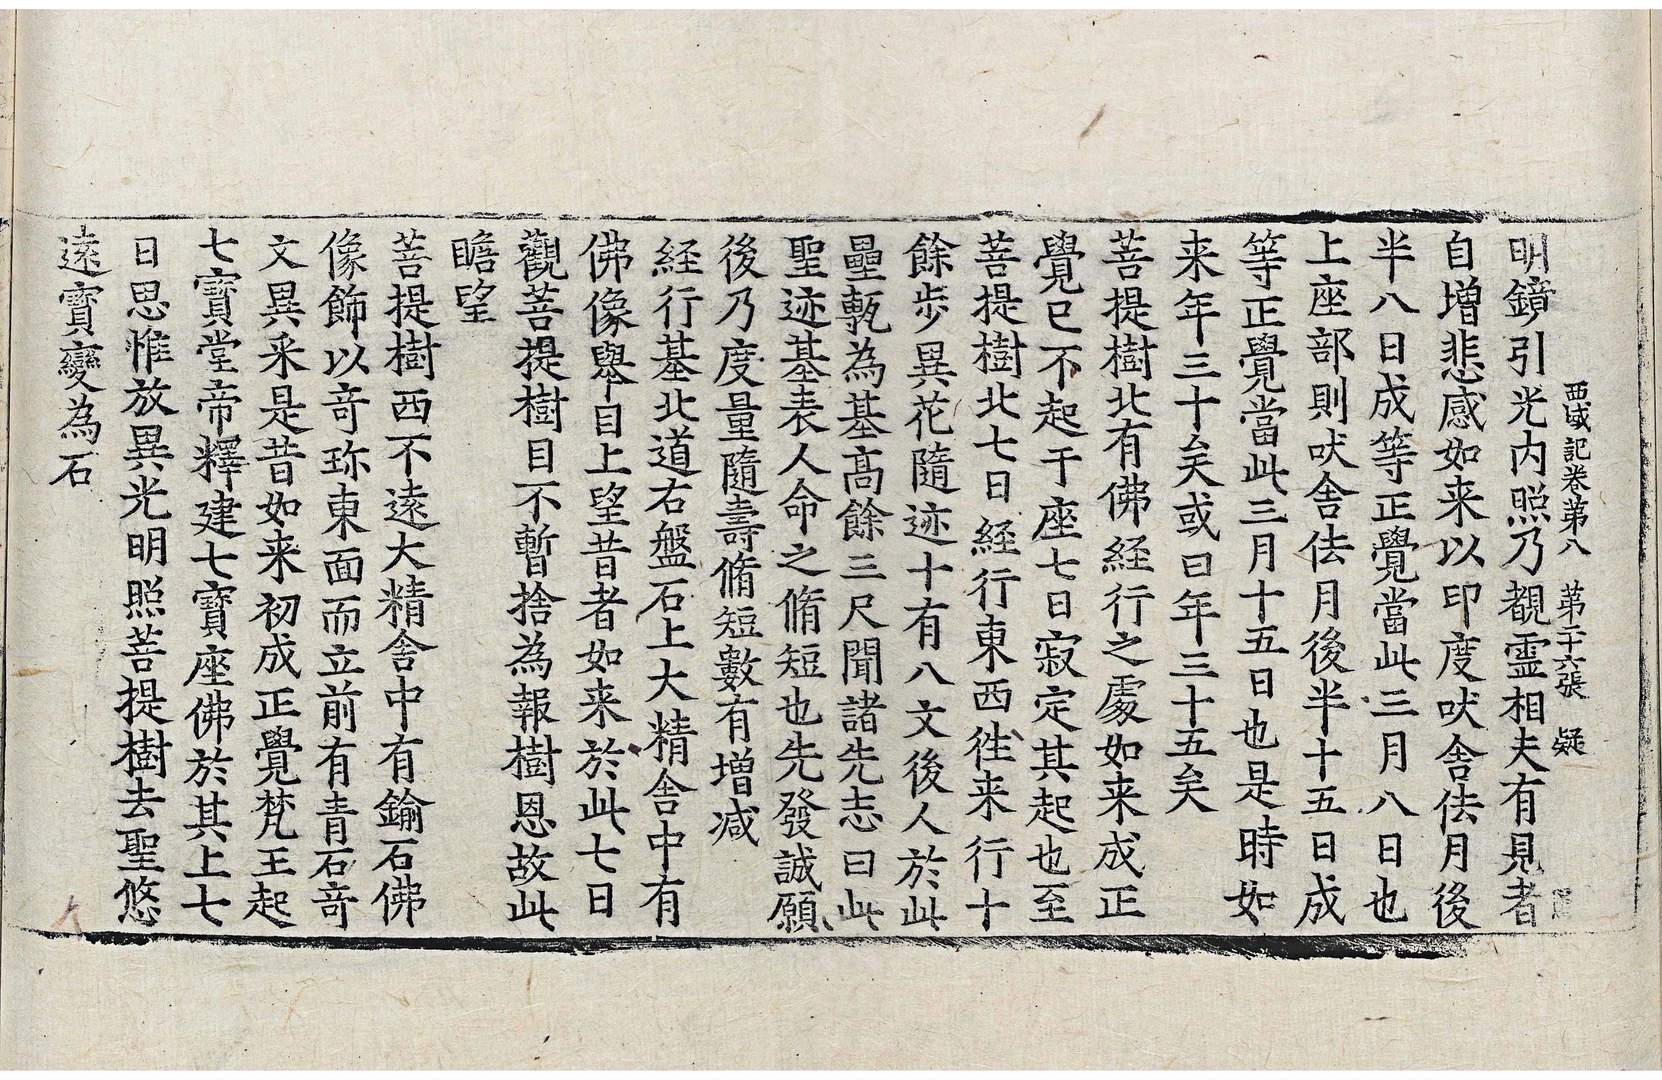 西域記卷第八 第二十六張 疑
明鏡引光内照乃覩靈相夫有見者
自增悲感如来以印度吠舍佉月後
半八日成等正覺當此三月八日也
上座部則吠舍佉月後半十五日成
等正覺當此三月十五日也是時如
来年三十矣或曰年三十五矣
菩提樹北有佛經行之處如来成正
覺已不起于座七日寂定其起也至
菩提樹北七日經行東西徃来行十
餘步異花隨迹十有八文後人於此
壘甎為基高餘三尺聞諸先志曰此
聖迹基表人命之脩短也先發誠願
後乃度量隨壽脩短數有增减
經行基北道右盤石上大精舍中有
佛像舉目上望昔者如来於此七日
觀菩提樹目不暫捨為報樹恩故此
瞻望
菩提樹西不遠大精舍中有鍮石佛
像飾以竒珎東面而立前有青石竒
文異采是昔如来初成正覺梵王起
七寶堂帝釋建七寶座佛於其上七
日思惟放異光明照菩提樹去聖悠
遠寶變為石